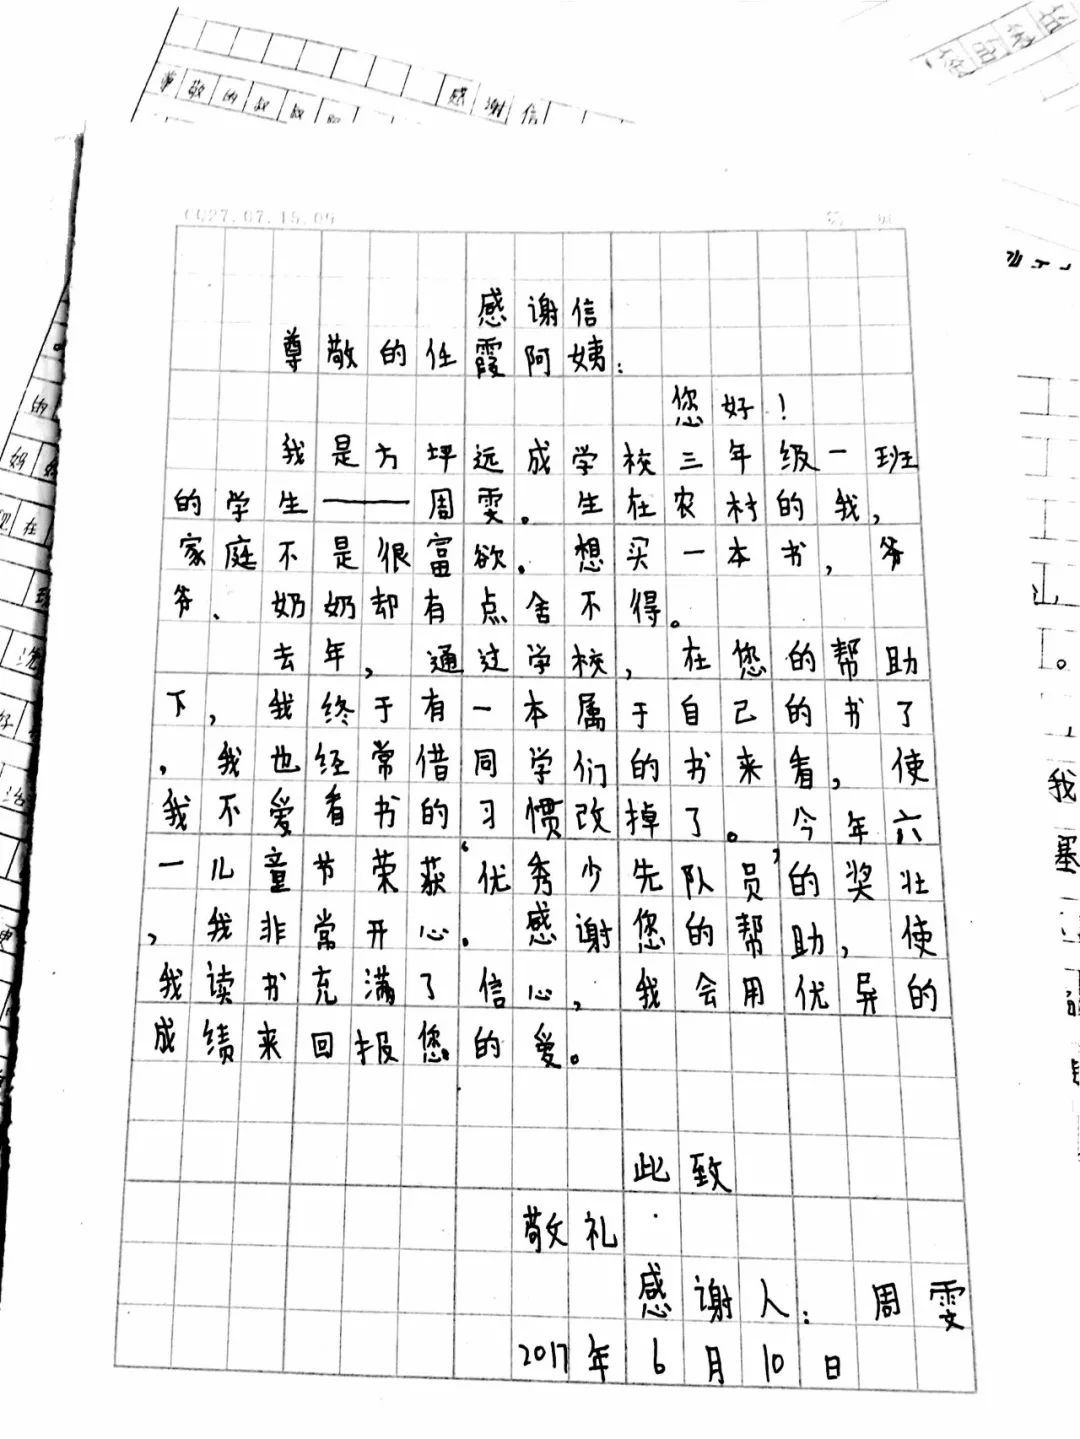 感谢信
尊敬的叔叔
CQ27.07.15.09
感谢信
尊敬的任霞阿姨：
您好！
我是方坪远成学校三年级一班
的学生——周雯。生在农村的我，
家庭不是很富欲。想买一本书，爷
爷、奶奶却有点舍不得。
去年，通过学校，在您的帮助
下，我终于有一本属于自己的书了
，我也经常借同学们的书来看，使
我不爱看书的习惯改掉了。今年六
一儿童节荣获‘优秀少先队员’的奖壮
，我非常开心。感谢您的帮助，使
我读书充满了信心，我会用优异的
成绩来回报您的爱。
此致
敬礼
感谢人：周雯
2017年6月10日